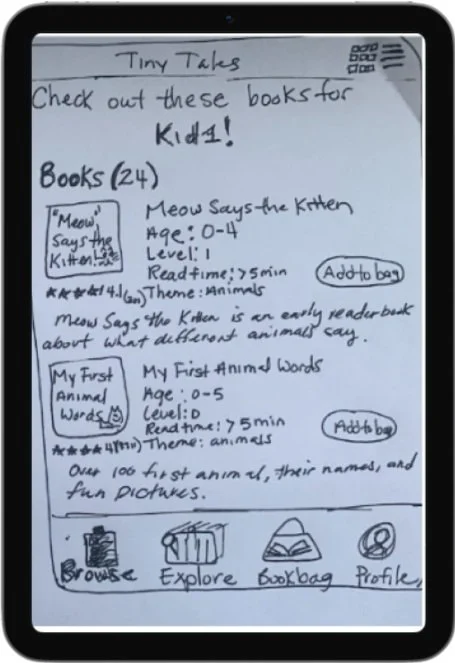 Tiny Tales
Check out these books for
Kid1!
Books (24)
"Meow"
Says the
Kitten
Meow Says the Kitten
Age: 0-4
Level: 1
Read time: >5min
Add to bag
4.1 Theme: Animals
Meow Says the Kitten is an early reader book
about what different animals say.
My First
Animal
Words
My First Animal Words
Age: 0-5
Level: 0
Read time: >5min
Add to bag
Theme: animals
Over 100 first animal, their names, and
fun pictures.
Browse
Explore
Bookbag
Profile